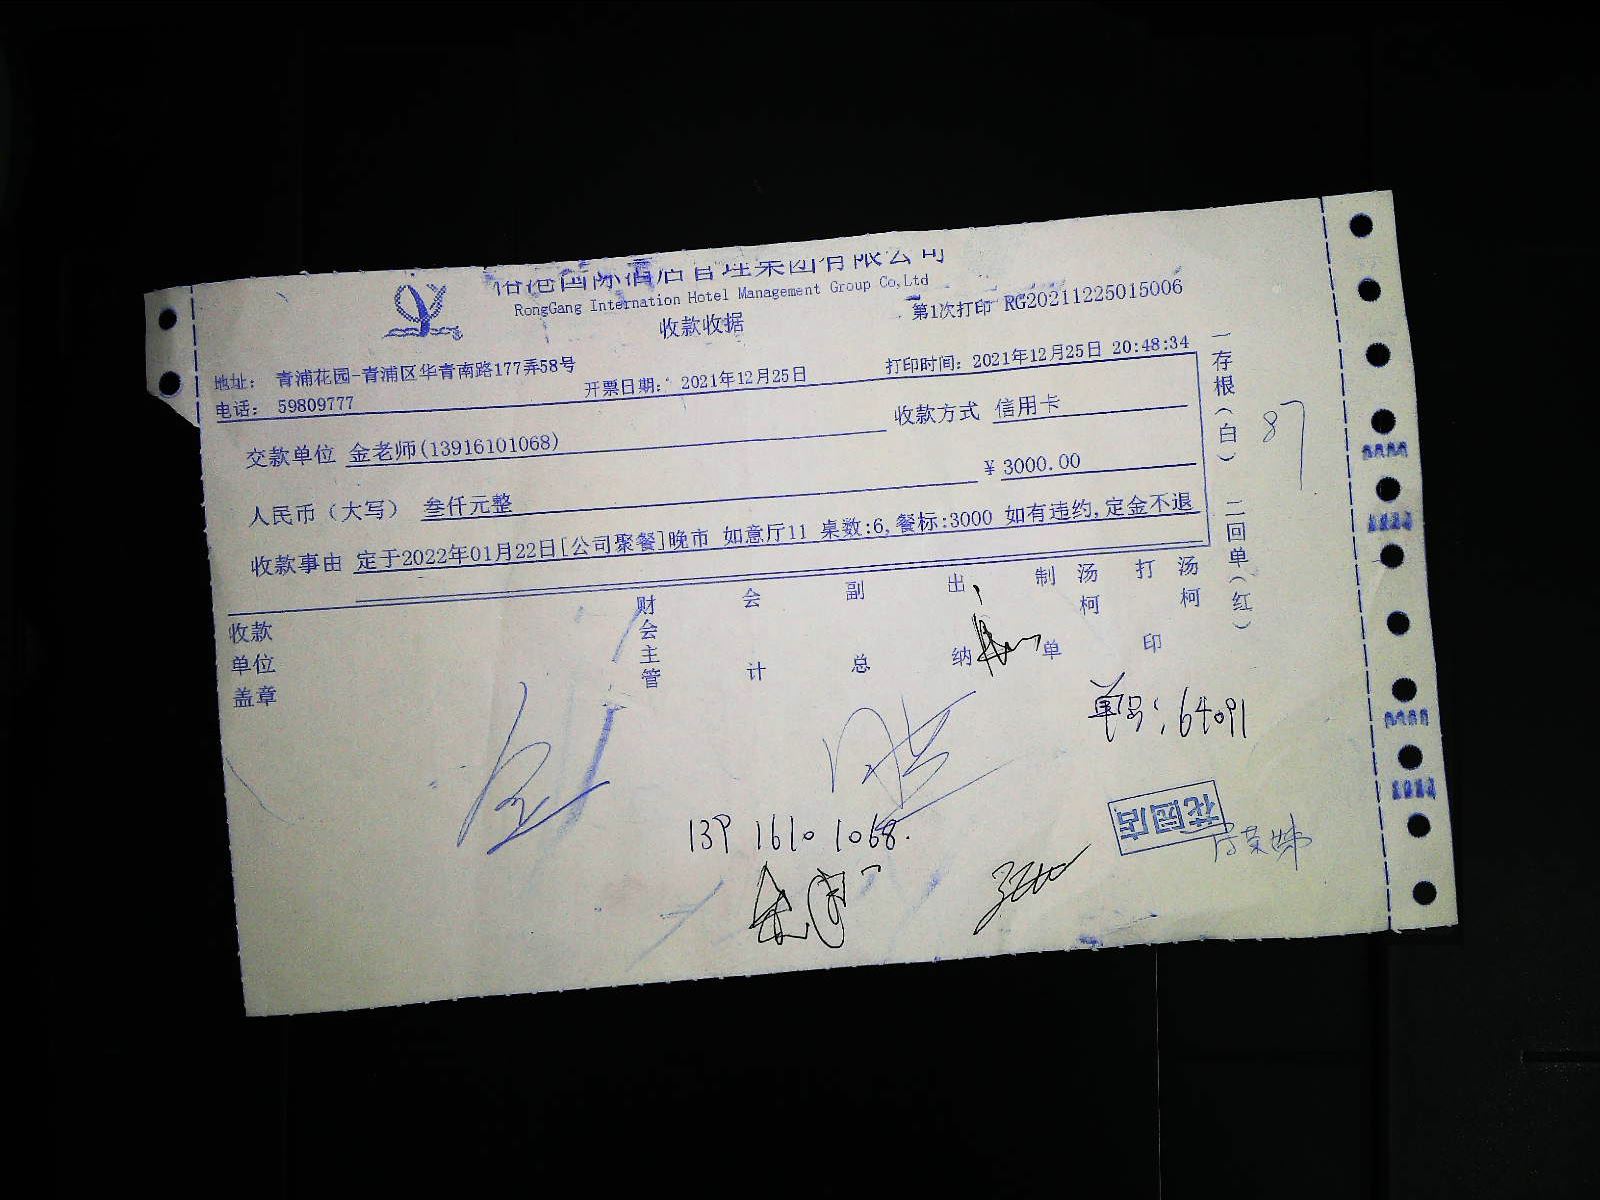 国际酒店管理集团有限公司
RongGang Internation Hotel Management Group Co,Ltd
收款收据
第1次打印 RG20211225015006
地址： 青浦花园-青浦区华青南路177弄58号
电话： 59809777
开票日期： 2021年12月25日
打印时间：2021年12月25日 20:48:34
交款单位 金老师(13916101068)
收款方式 信用卡
人民币（大写） 叁仟元整
¥ 3000.00
收款事由 定于2022年01月22日[公司聚餐]晚市 如意厅11 桌数:6,餐标:3000 如有违约,定金不退
收款单位盖章
财会主管
会计
副总
出纳
制单 汤柯
打印 汤柯
一存根（白） 二回单（红）
87
单号：64091
139 1610 1068.
花园店